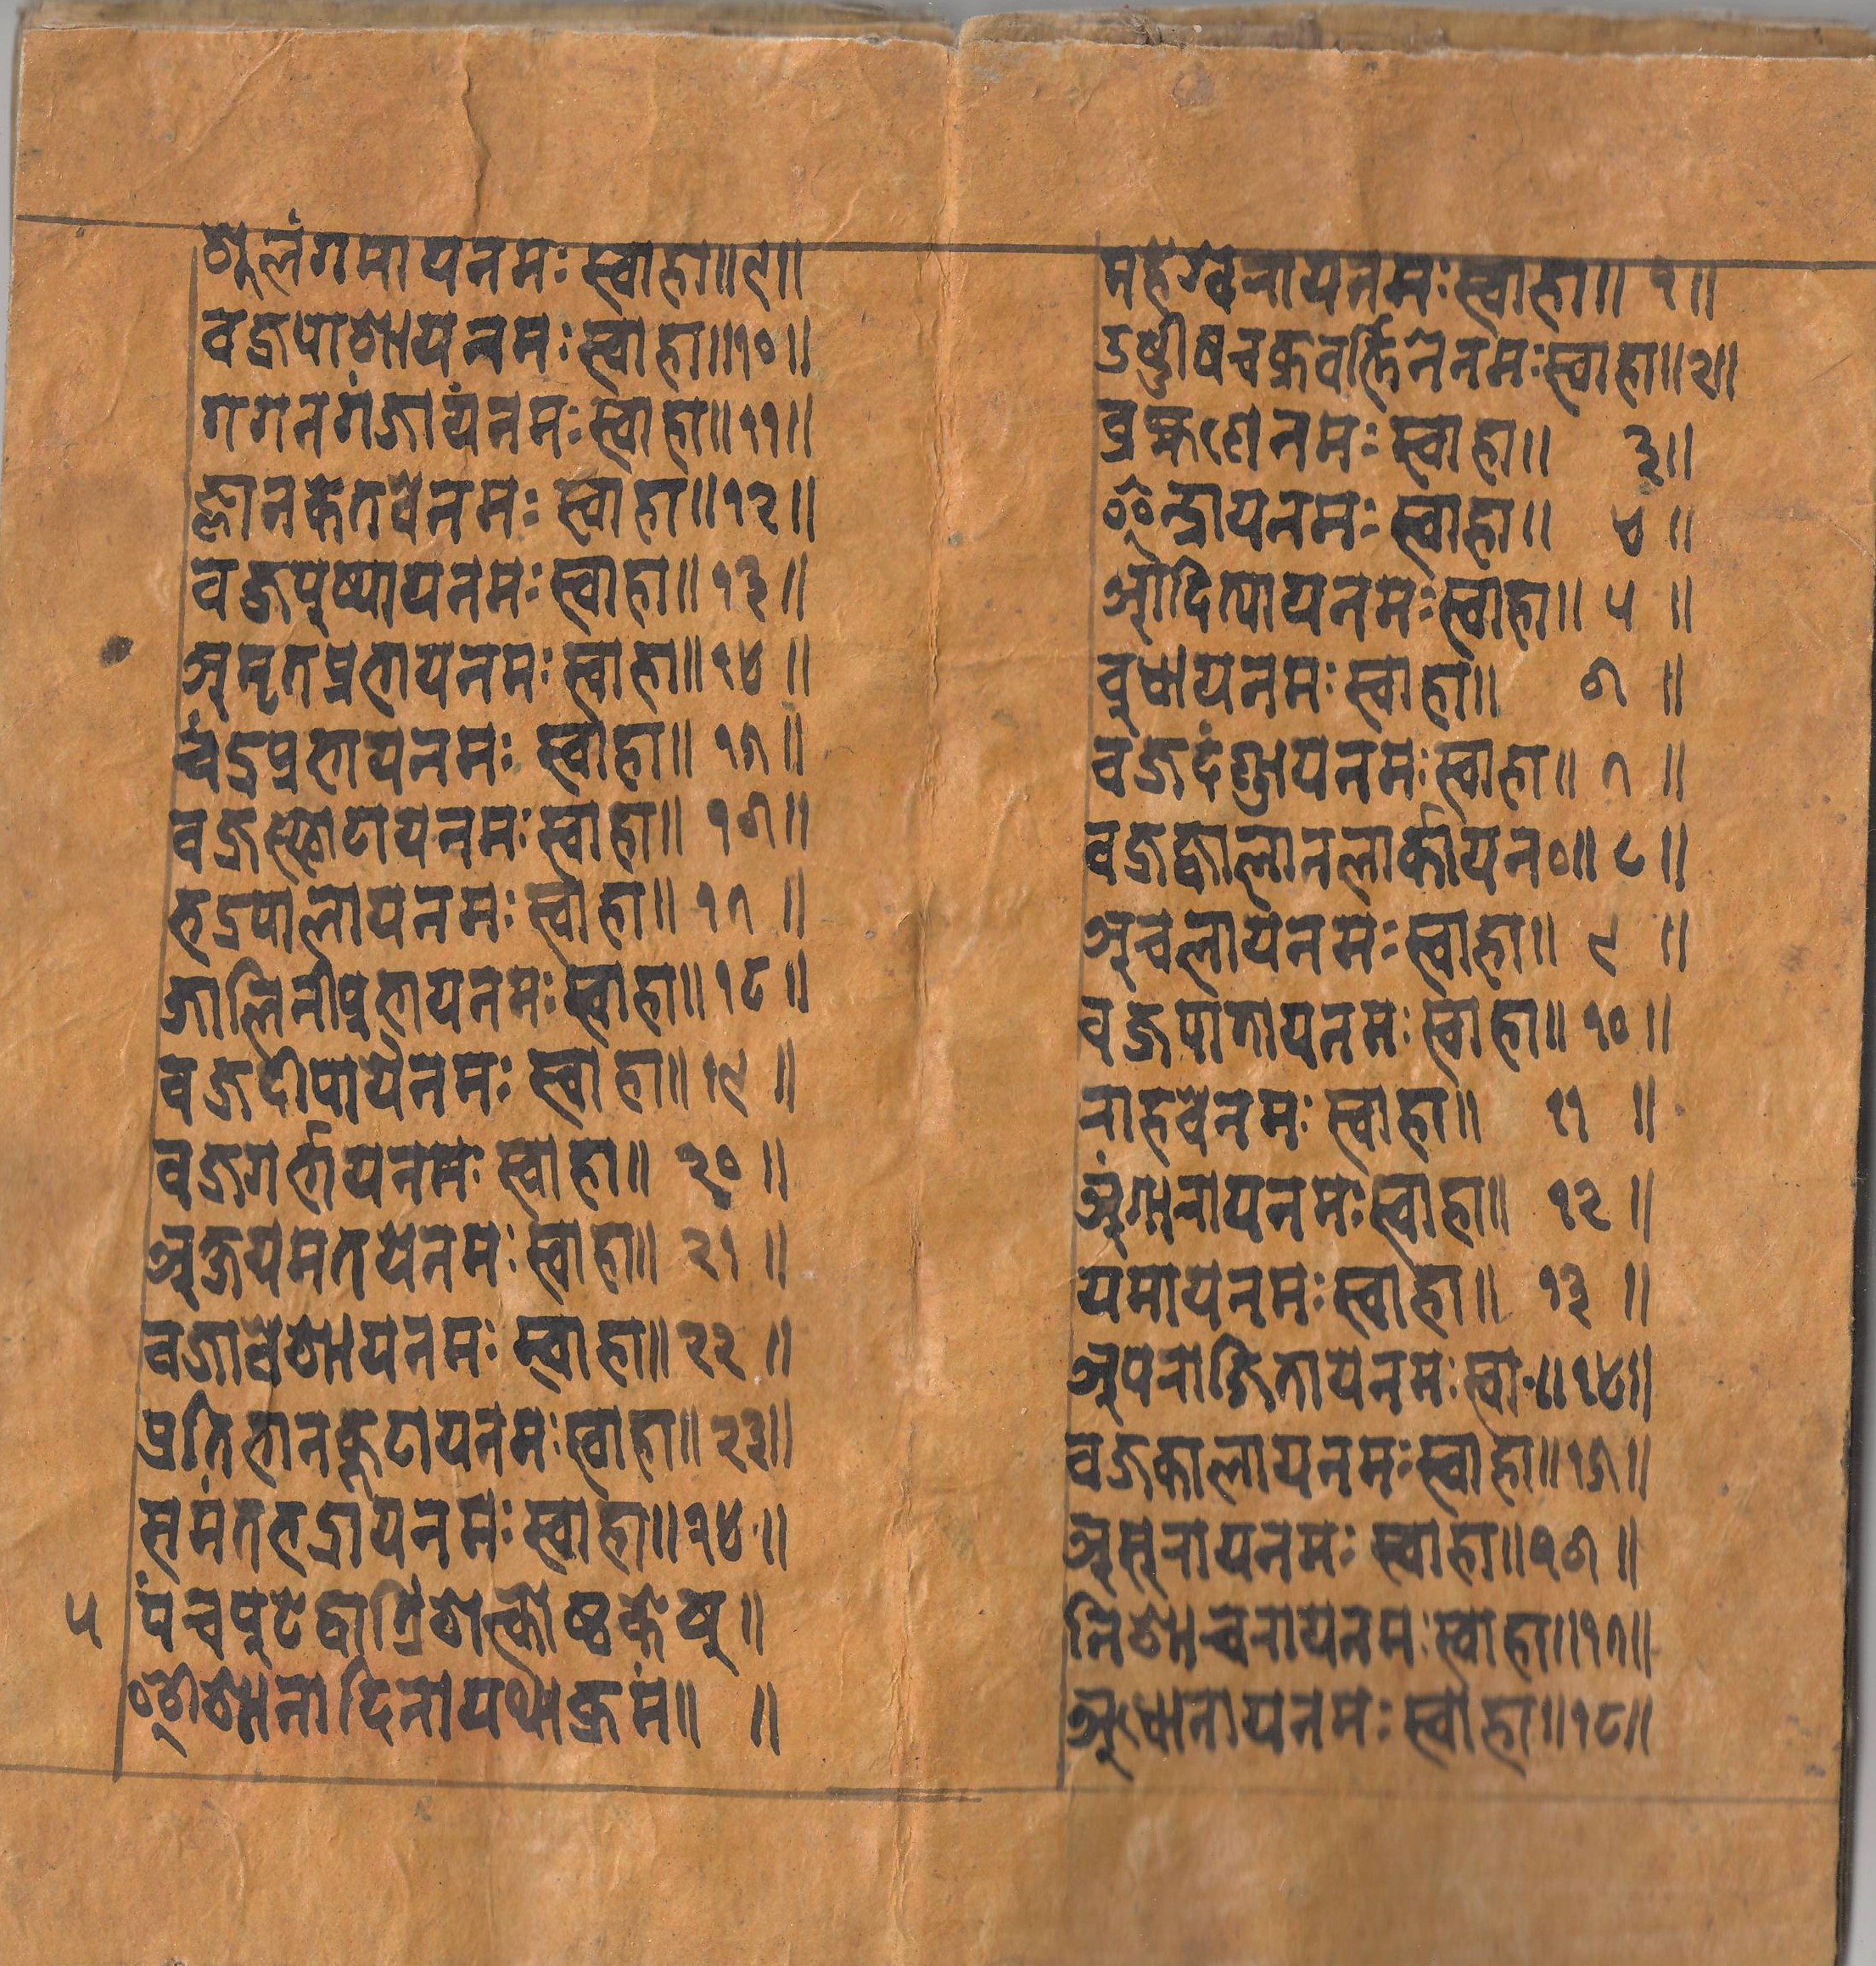 शुलंगमायनमः स्वाहा॥९॥
वज्रपाशायनमः स्वाहा॥१०॥
गगनगंजायनमः स्वाहा॥११॥
ज्ञानकेतवेनमः स्वाहा॥१२॥
वज्रपुष्पायनमः स्वाहा॥१३॥
अमृतप्रभायनमः स्वाहा॥१४॥
चंद्रप्रभायनमः स्वाहा॥१५॥
वज्रस्फोटायनमः स्वाहा॥१६॥
भद्रपालायनमः स्वाहा॥१७॥
जालिनीप्रभायनमः स्वाहा॥१८॥
वज्रदीपायैनमः स्वाहा॥१९॥
वज्रगर्भायनमः स्वाहा॥२०॥
अक्षयमतयेनमः स्वाहा॥२१॥
वज्रावेशायनमः स्वाहा॥२२॥
प्रतिभानकूटायनमः स्वाहा॥२३॥
समंतभद्रायनमः स्वाहा॥२४॥
५ पंचपुटेद्वात्रिंशत्कोष्ठकेषु॥
ईशानादिनायथाक्रमं॥ ॥
महेश्वरायनमः स्वाहा॥ १॥
उष्णीषचक्रवर्त्तिनेनमः स्वाहा॥२॥
ब्रह्मणेनमः स्वाहा॥ ३॥
इन्द्रायनमः स्वाहा॥ ४॥
आदित्यायनमः स्वाहा॥ ५॥
बुधायनमः स्वाहा॥ ६॥
वज्रदंण्डायनमः स्वाहा॥ ७॥
वज्रज्वालानलार्कायन०॥ ८॥
अचलायनमः स्वाहा॥ ९॥
वज्रपातायनमः स्वाहा॥ १०॥
राहवेनमः स्वाहा॥ ११॥
अंगारायनमः स्वाहा॥ १२॥
यमायनमः स्वाहा॥ १३॥
अपराजितायनमः स्वा॰॥१४॥
वज्रकालायनमः स्वाहा॥१५॥
असुरायनमः स्वाहा॥१६॥
निशाचरायनमः स्वाहा॥१७॥
अघोरायनमः स्वाहा॥१८॥